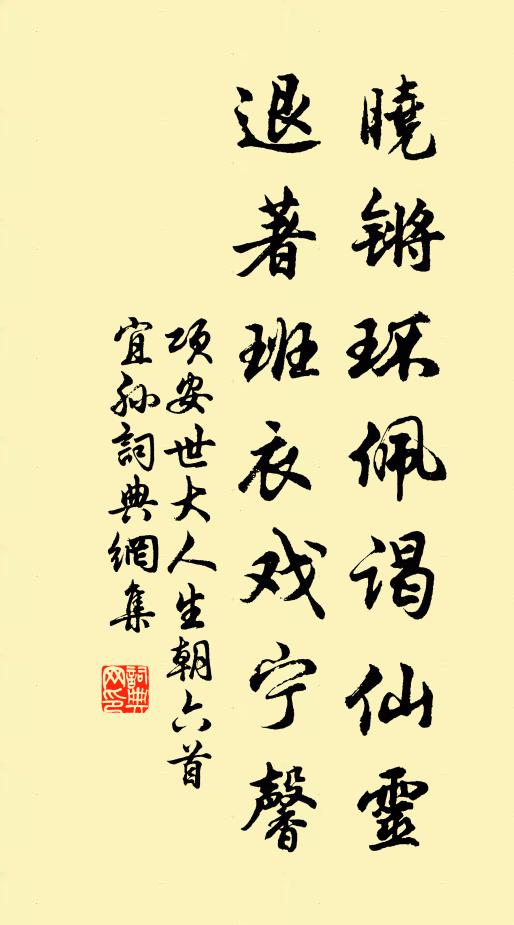 曉锵环佩谒仙靈
退著班衣戏宁馨
项安世大人生朝六首
宜孙詞典網集
詞典
网印